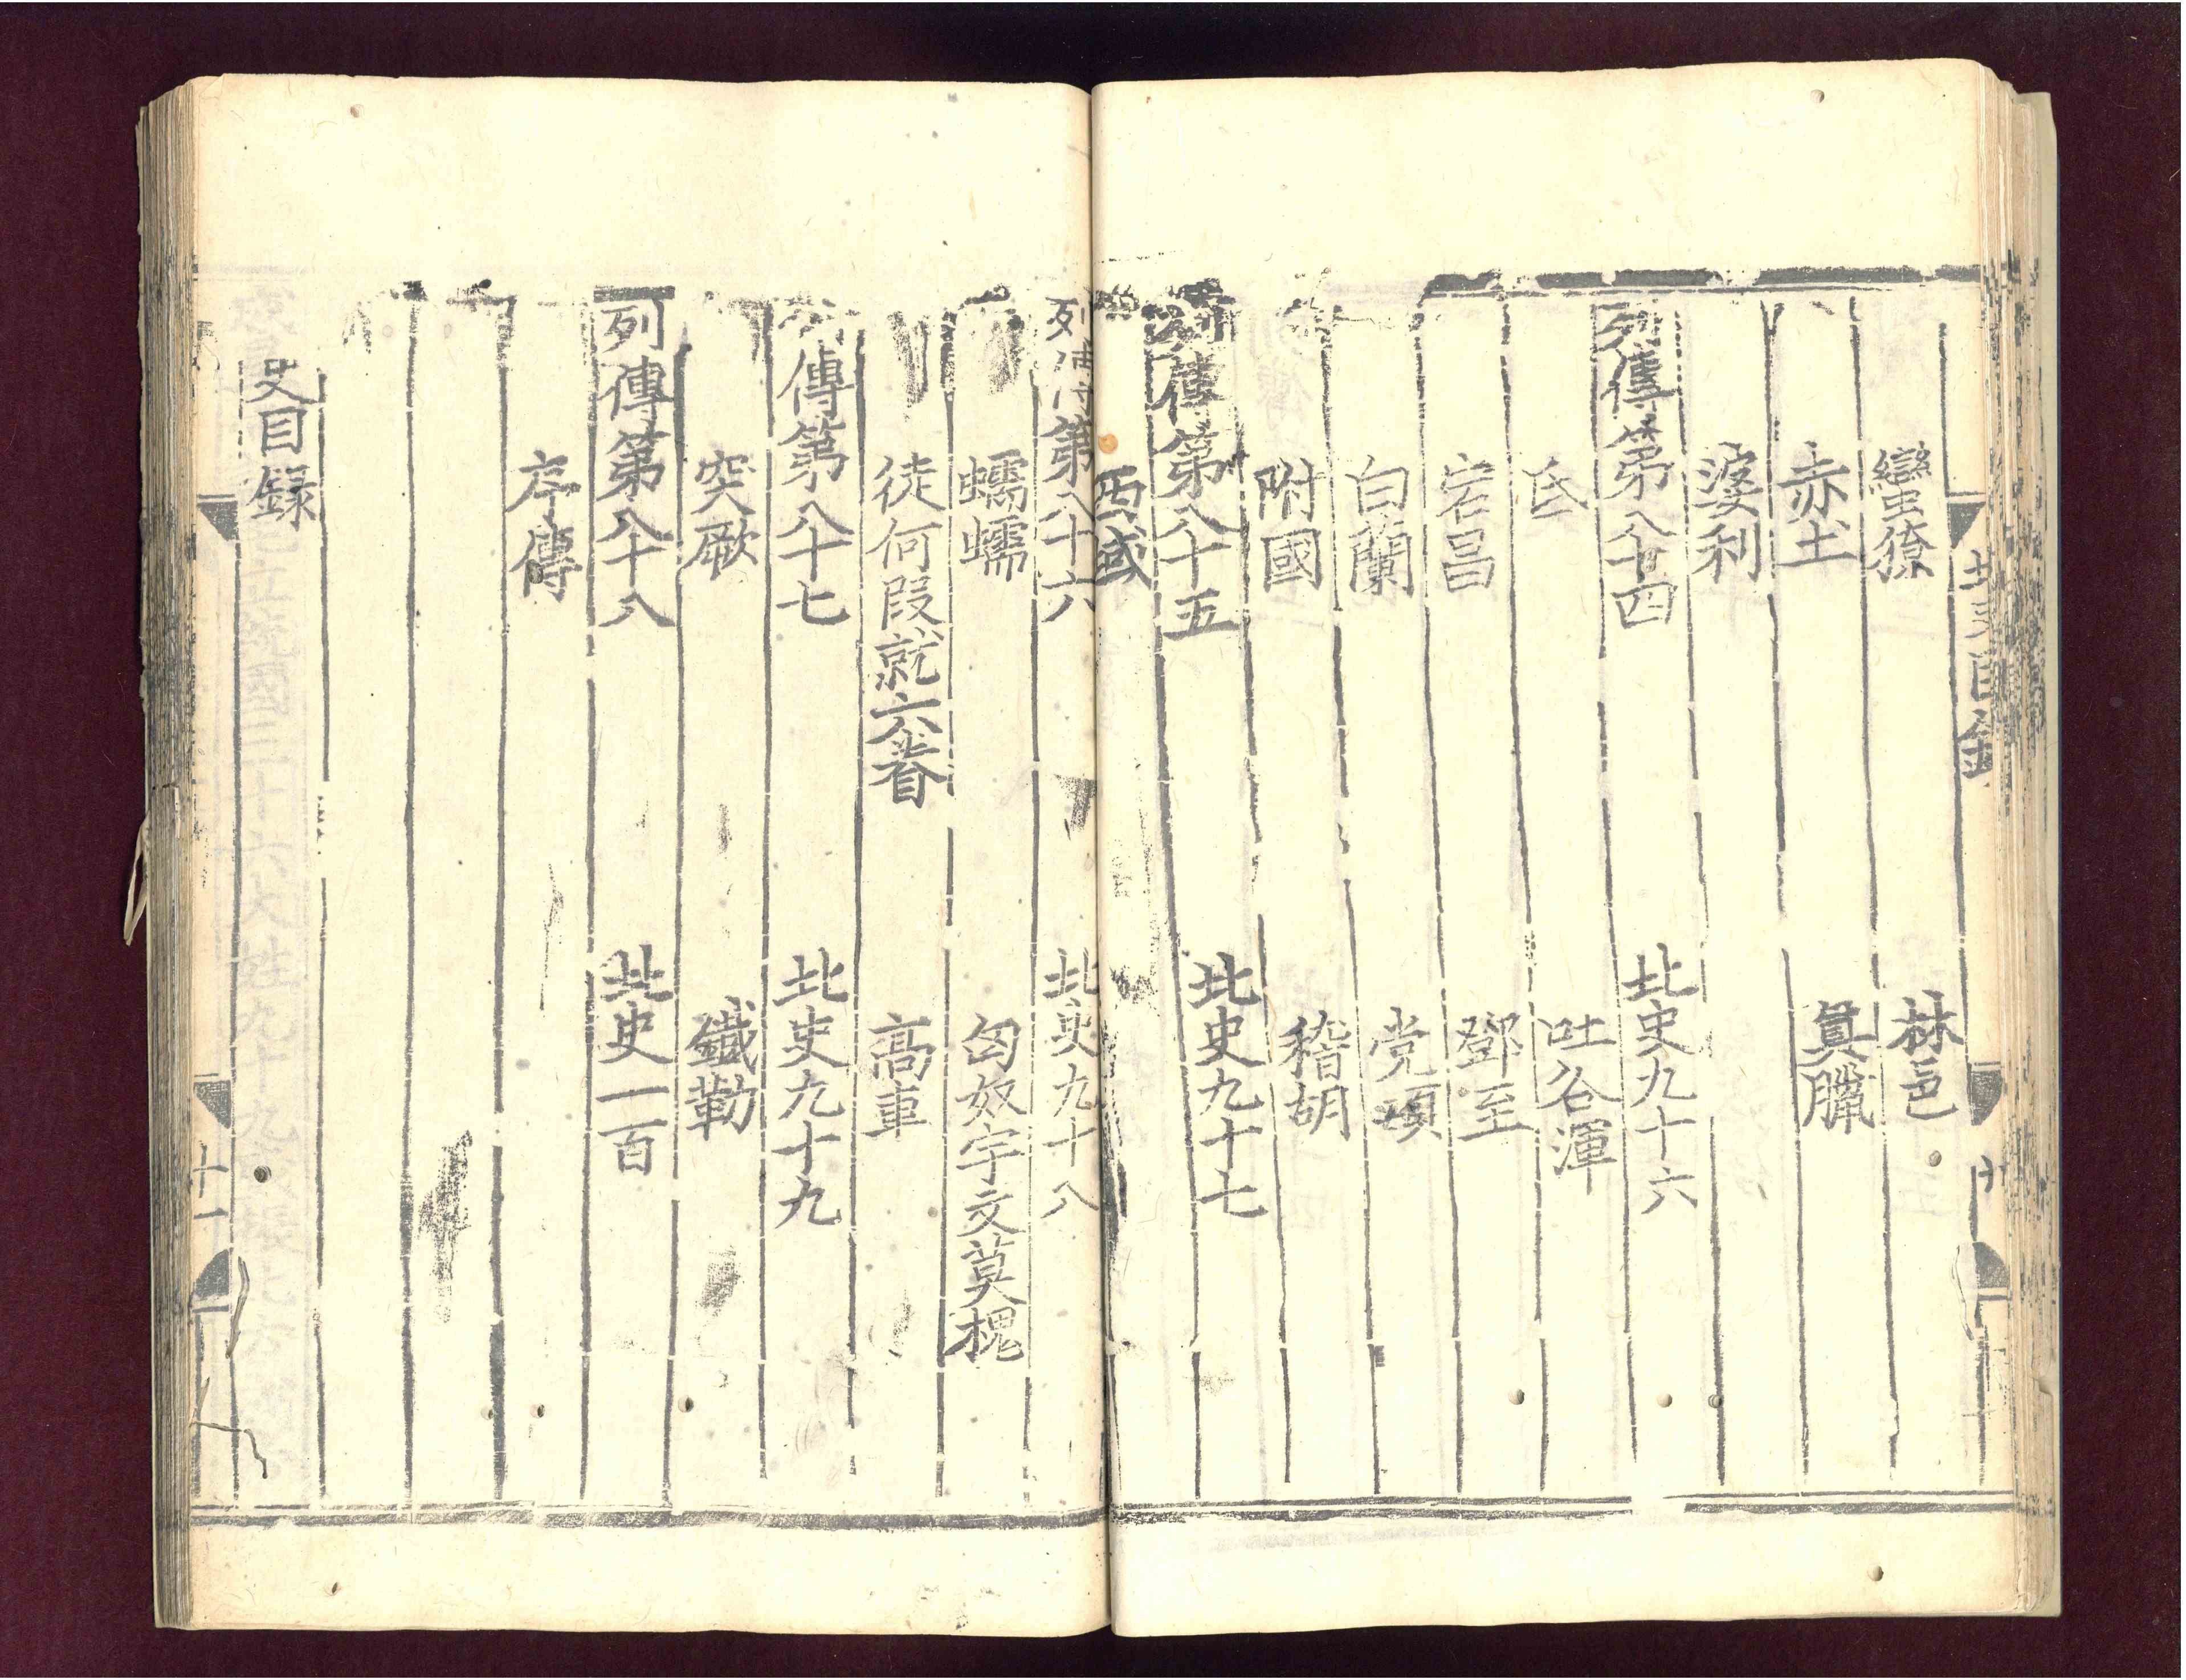 北史目錄
十
蠻獠 林邑
赤土 眞臘
婆利
列傳第八十四 北史九十六
氐 吐谷渾
宕昌 鄧至
白蘭 党項
附國 稽胡
列傳第八十五 北史九十七
西域
列傳第八十六 北史九十八
蠕蠕 匈奴宇文莫槐
徒何段就六眷 高車
列傳第八十七 北史九十九
突厥 鐵勒
列傳第八十八 北史一百
序傳
史目録
十一